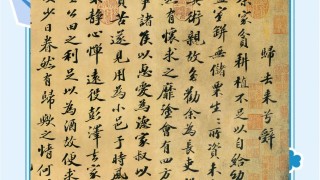 歸去来兮辭
余家貧耕植不足以自給幼
盈室缾無儲粟生生所資未
其術親故多勸余為長吏
然有懷求之靡塗會有四方
事諸侯以惠愛為德家叔以
貧苦遂見用為小邑于時風
未静心憚遠役彭澤去家
公田之利足以為酒故便求
及少日眷然有歸與之情何